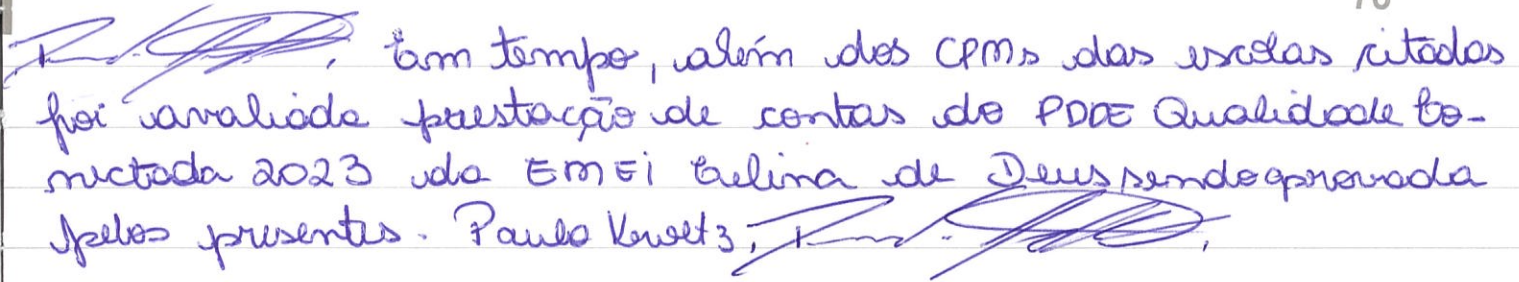 Em tempo, além dos CPMs das escolas citadas
foi avaliada prestação de contas do PDDE Qualidade Co-
nectada 2023 da EMEi Celina de Deus sendo aprovada
pelos presentes. Paulo